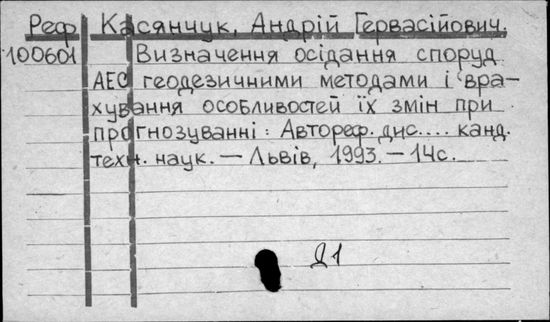 Реф Касянчук, Андрій Гервасійович.
100601 Визначення осідання споруд
АЕС геодезичними методами і вра-
хування особливостей їх змін при
прогнозуванні: Автореф. дис.... канд.
техн. наук. — Львів, 1993. — 14с.
Д1